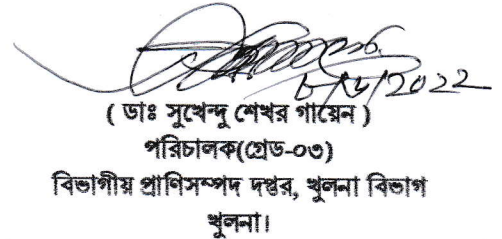 ( ডাঃ সুখেন্দু শেখর গায়েন )
পরিচালক(গ্রেড-০৩)
বিভাগীয় প্রাণিসম্পদ দপ্তর, খুলনা বিভাগ
খুলনা।